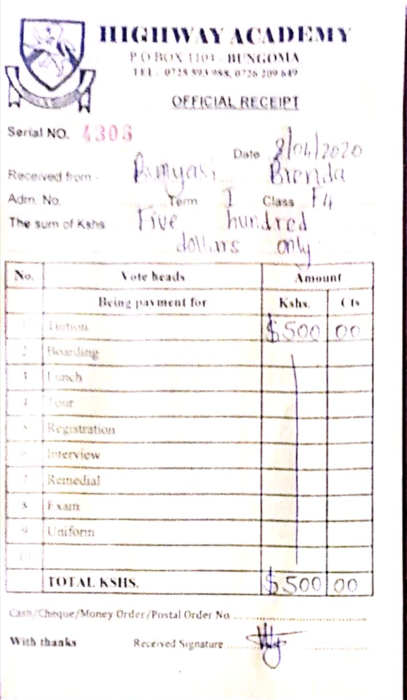 HIGHWAY ACADEMY
P O BOX 1101 - BUNGOMA
TEL: 0725 593 988, 0726 209 649
OFFICIAL RECEIPT
Serial NO. 4306
Date 8/04/2020
Received from - Brenda
Adm. No. Term I Class F4
The sum of Kshs Five hundred
dollars only
No. Vote heads Amount
Being payment for Kshs. Cts
1 Tuition $500 00
2 Boarding
3 Lunch
4 Tour
5 Registration
6 Interview
7 Remedial
8 Exam
9 Uniform
10
TOTAL KSHS. $500 00
Cash/Cheque/Money Order/Postal Order No.
With thanks Received Signature